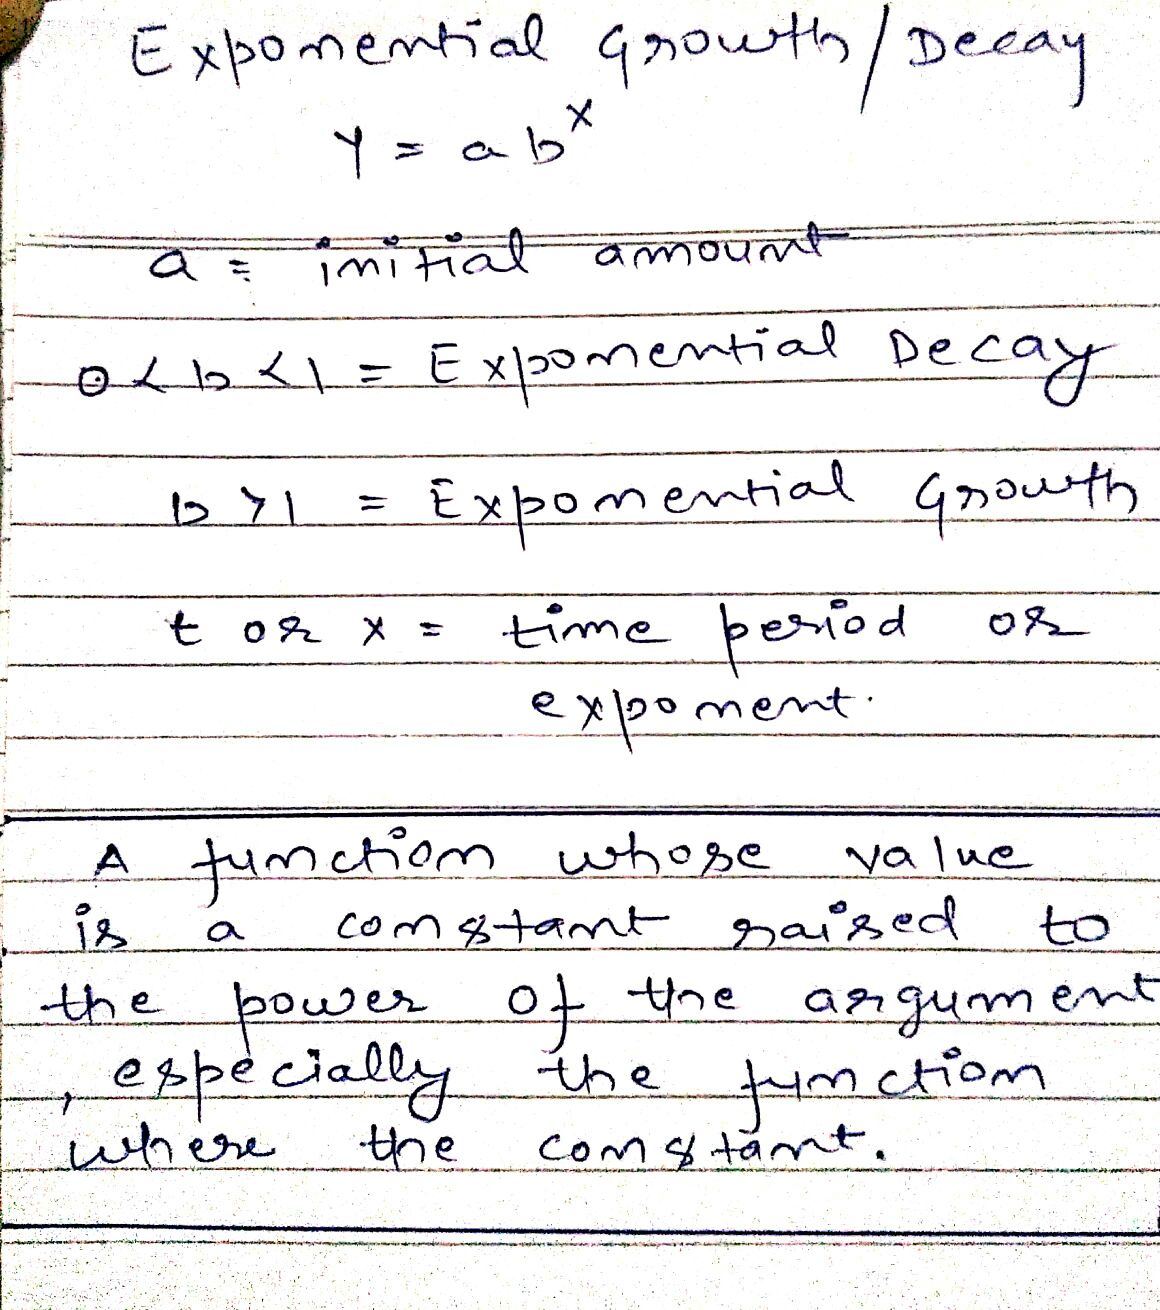 Exponential Growth/Decay
Y = ab^x
a = initial amount
0 < b < 1 = Exponential Decay
b > 1 = Exponential Growth
t or x = time period or
exponent.
A function whose value
is a constant raised to
the power of the argument
, especially the function
where the constant.